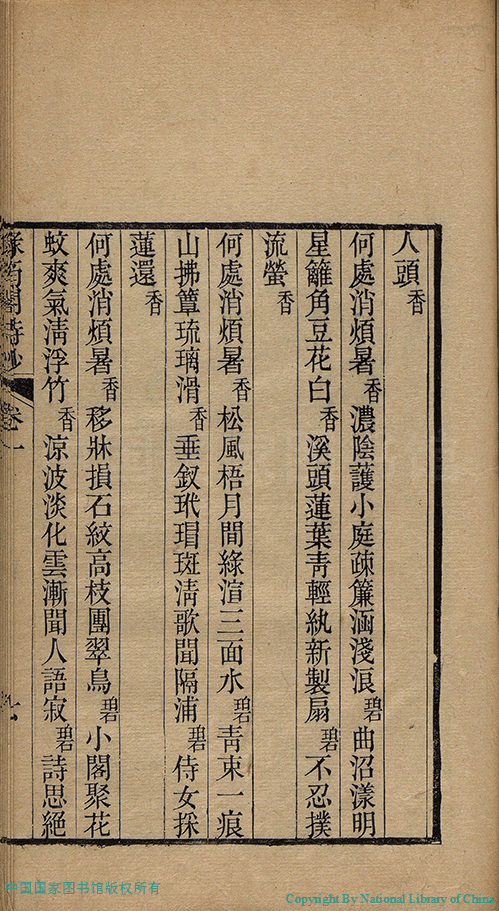 人頭香
何處消煩暑香濃陰護小庭疎簾涵淺浪碧曲沼漾明
星籬角豆花白香溪頭蓮葉靑輕紈新製扇碧不忍撲
流螢香
何處消煩暑香松風梧月間綠渲三面水碧靑束一痕
山拂簟琉璃滑香垂釵玳瑁斑淸歌聞隔浦碧侍女採
蓮還香
何處消煩暑香移牀損石紋高枝團翠鳥碧小閣聚花
蚊爽氣淸浮竹香凉波淡化雲漸聞人語寂碧詩思絕
閣詩鈔 卷一
中国国家图书馆版权所有
Copyright By National Library of China